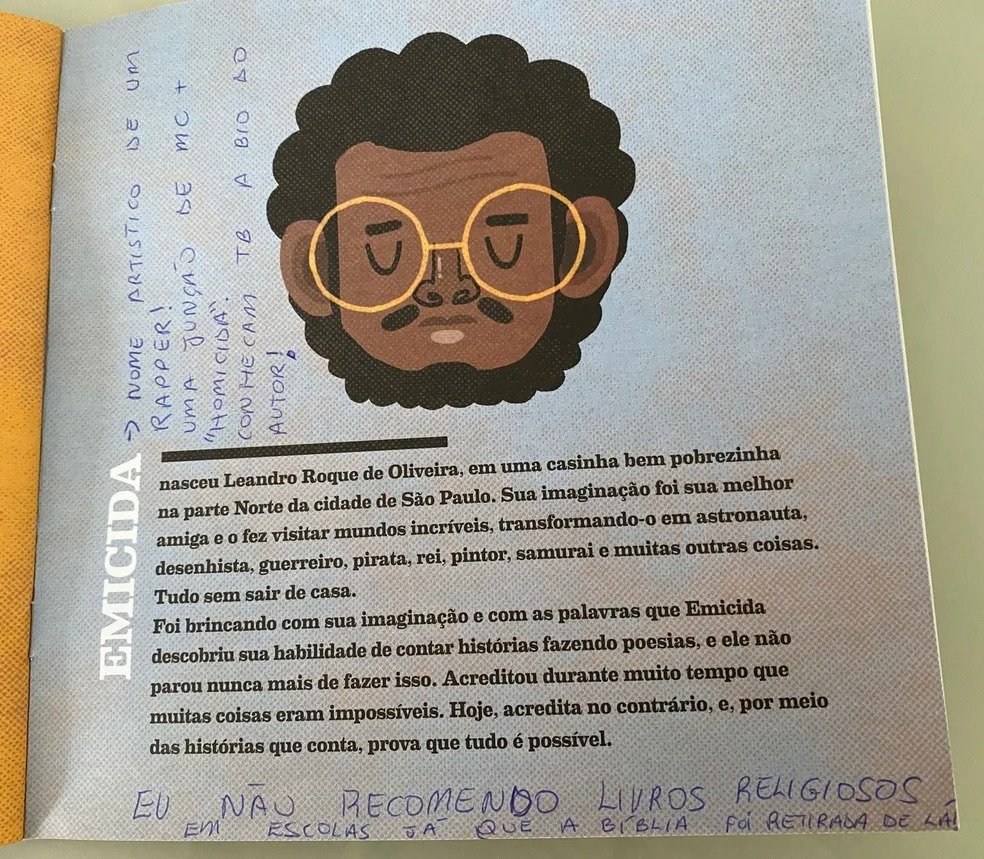 → NOME ARTISTICO DE UM
RAPPER!
UMA JUNÇÃO DE MC +
"HOMICIDA".
CONHECAM TB A BIO DO
AUTOR!
EMICIDA
nasceu Leandro Roque de Oliveira, em uma casinha bem pobrezinha
na parte Norte da cidade de São Paulo. Sua imaginação foi sua melhor
amiga e o fez visitar mundos incríveis, transformando-o em astronauta,
desenhista, guerreiro, pirata, rei, pintor, samurai e muitas outras coisas.
Tudo sem sair de casa.
Foi brincando com sua imaginação e com as palavras que Emicida
descobriu sua habilidade de contar histórias fazendo poesias, e ele não
parou nunca mais de fazer isso. Acreditou durante muito tempo que
muitas coisas eram impossíveis. Hoje, acredita no contrário, e, por meio
das histórias que conta, prova que tudo é possível.
EU NÃO RECOMENDO LIVROS RELIGIOSOS
EM ESCOLAS JÁ QUE A BÍBLIA FOI RETIRADA DE LÁ!